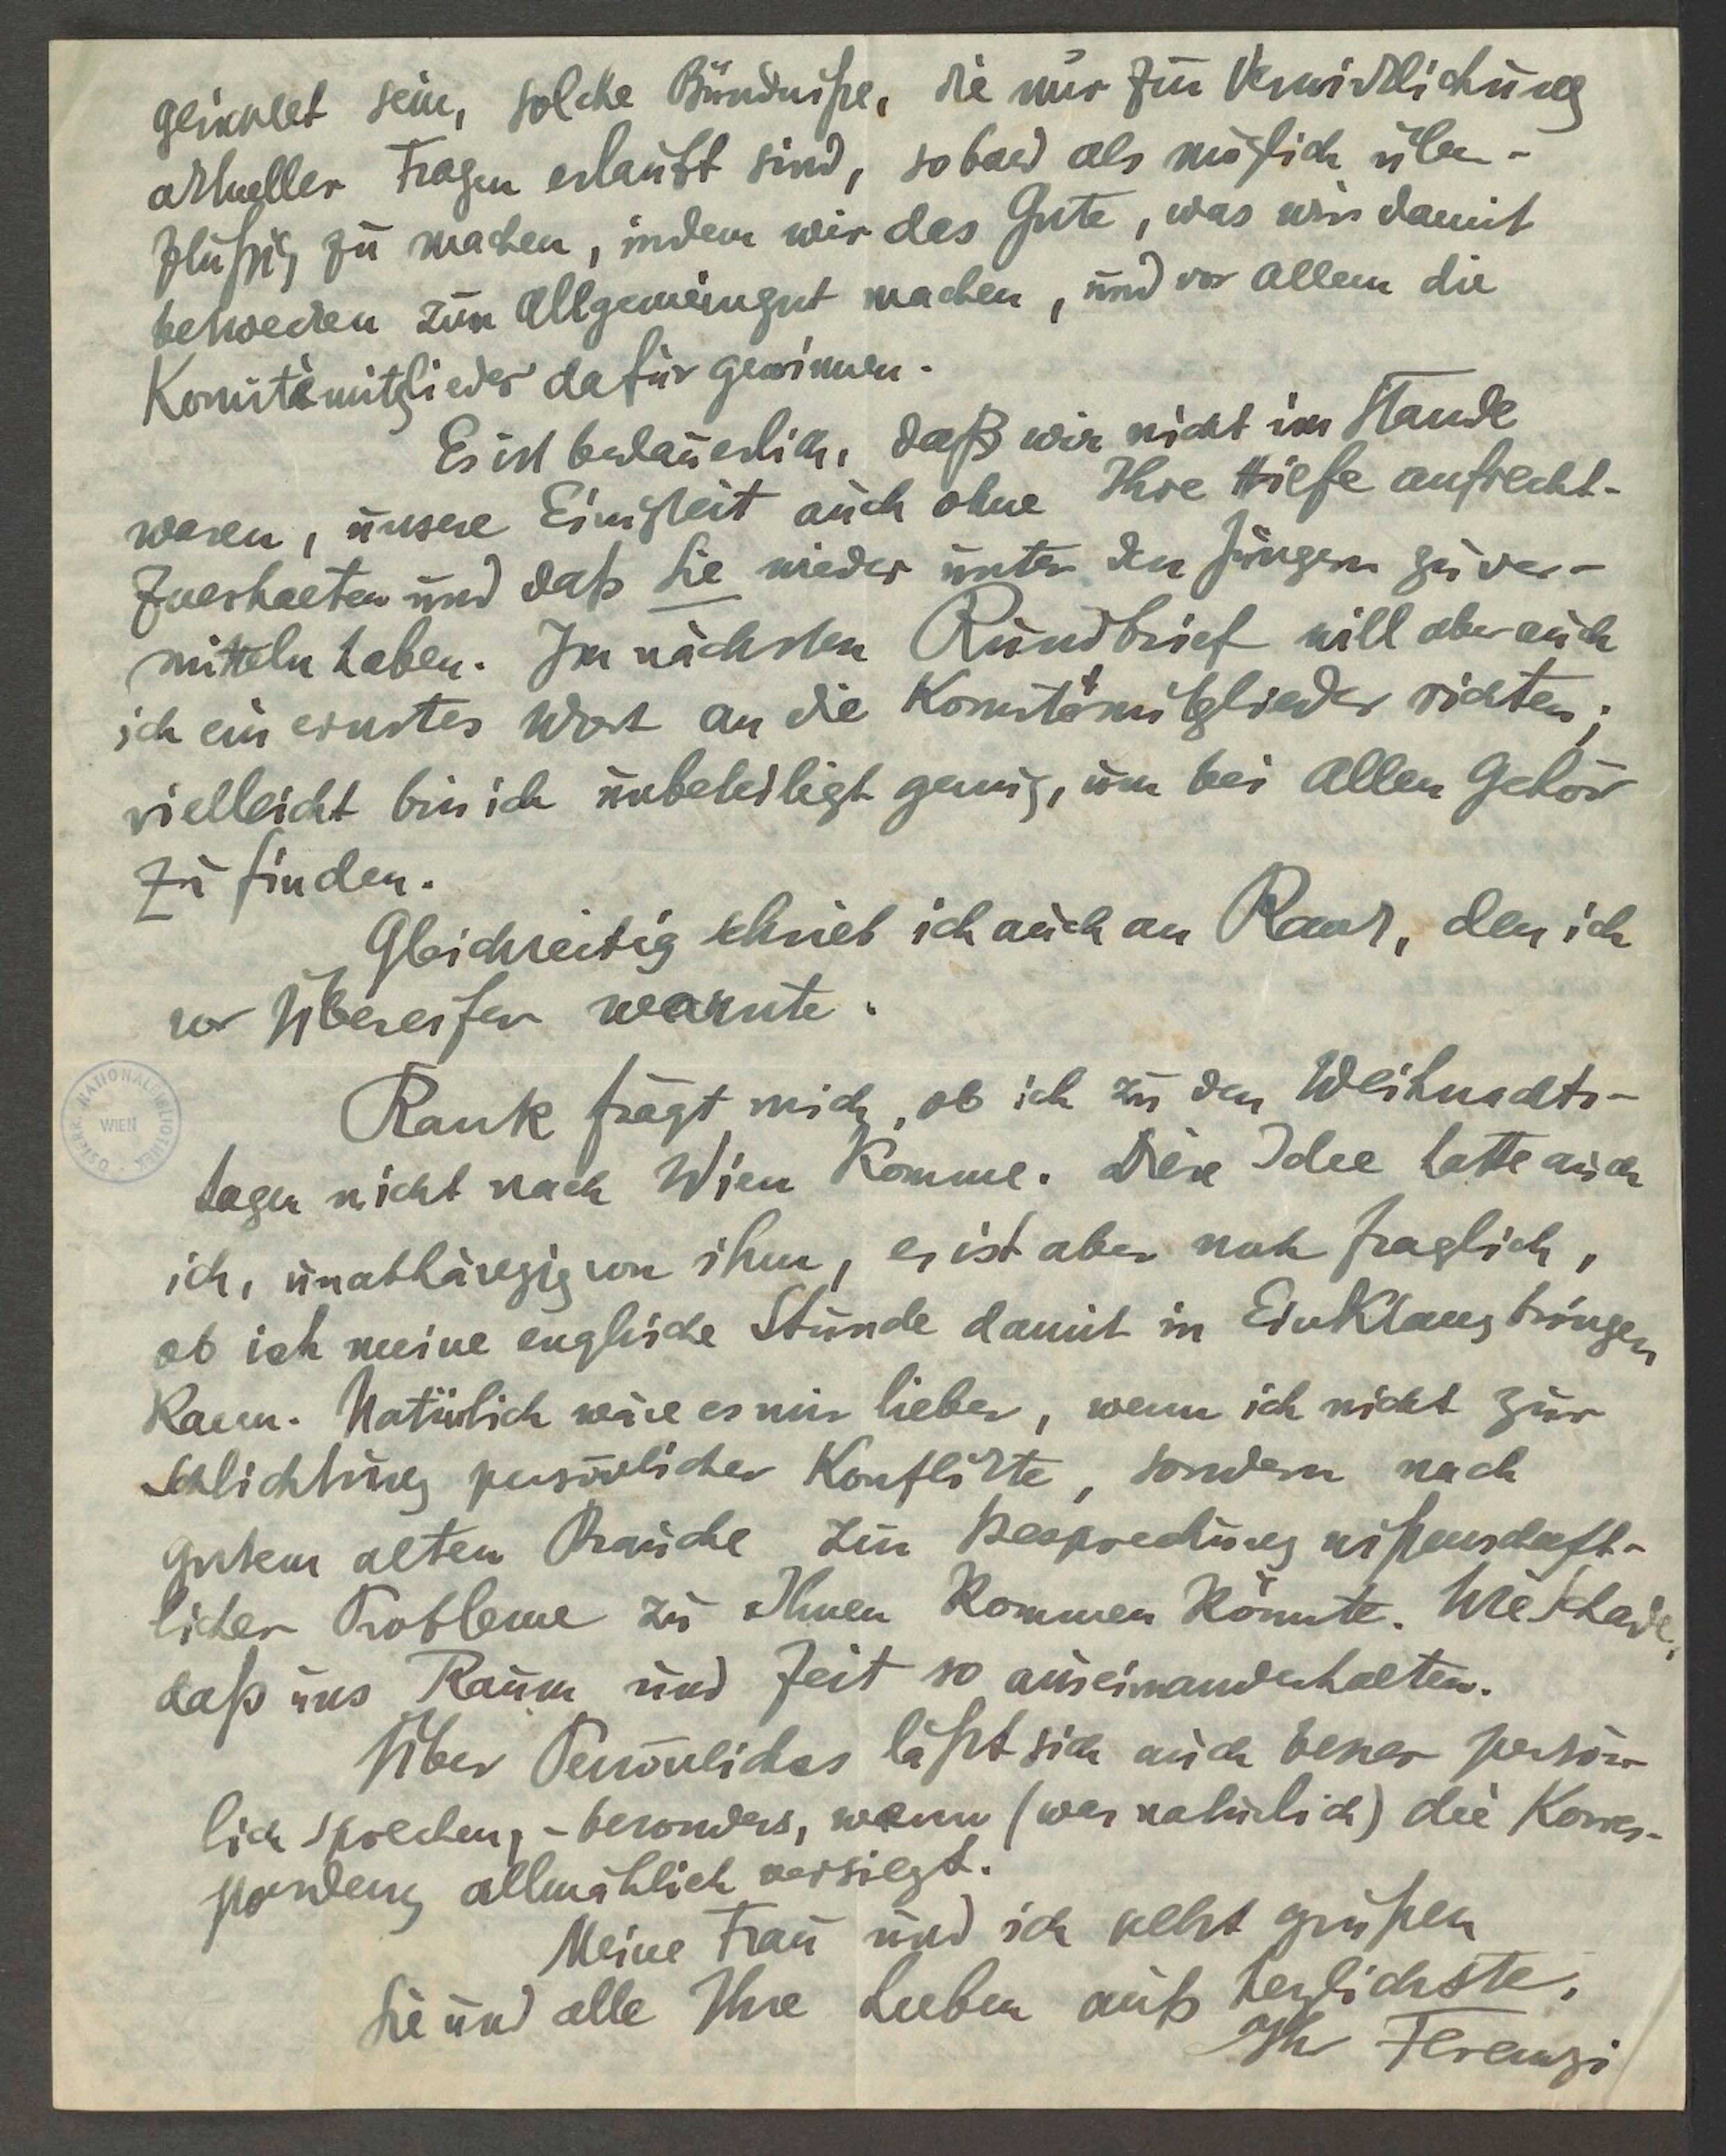 sein, solche Bündniße, die nur zur Verwirklichung
aktueller Fragen erlaubt sind, sobald als möglich über-
flüßig zu machen, indem wir das Gute, was wir damit
bezwecken zum Allgemeingut machen, und vor allem die
Komitémitglieder dafür gewinnen.
Es ist bedauerlich, daß wir nicht im Stande
waren, unsere Einigkeit auch ohne Ihre Hilfe aufrecht-
zuerhalten und daß Sie wieder unter den Jüngern zu ver-
mitteln haben. Im nächsten Rundbrief will aber auch
ich ein ernstes Wort an die Komitémitglieder richten;
vielleicht bin ich unbeteiligt genug, um bei Allen Gehör
zu finden.
Gleichzeitig schrieb ich auch an Rank, den ich
vor Übereifer warnte.
Rank frägt mich, ob ich zu den Weihnachts-
tagen nicht nach Wien komme. Diese Idee hatte auch
ich, unabhängig von ihm, es ist aber noch fraglich,
ob ich meine englische Stunde damit in Einklang bringen
kann. Natürlich wäre es mir lieber, wenn ich nicht zur
Schlichtung persönlicher Konflikte, sondern nach
gutem alten Brauche zur Besprechung wißenschaft-
licher Probleme zu Ihnen kommen könnte. Wie schade,
daß uns Raum und Zeit so auseinanderhalten.
Über Persönliches läßt sich auch besser persön-
lich sprechen, - besonders, wenn (was natürlich) die Korres-
pondenz allmählich versiegt.
Meine Frau und ich selbst grüßen
Sie und alle Ihre Lieben aufs herzlichste,
Ihr Ferenczi
ÖSTERR. NATIONALBIBLIOTHEK
WIEN